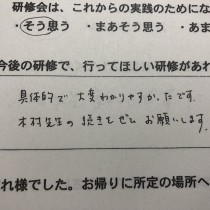 研修会は、これからの実践のためにな
・そう思う ・まあそう思う ・あま
今後の研修で、行ってほしい研修があれ
具体的で 大変わかりやすかったです。
木村先生の 続きをぜひ お願いします。
れ様でした。お帰りに所定の場所へ